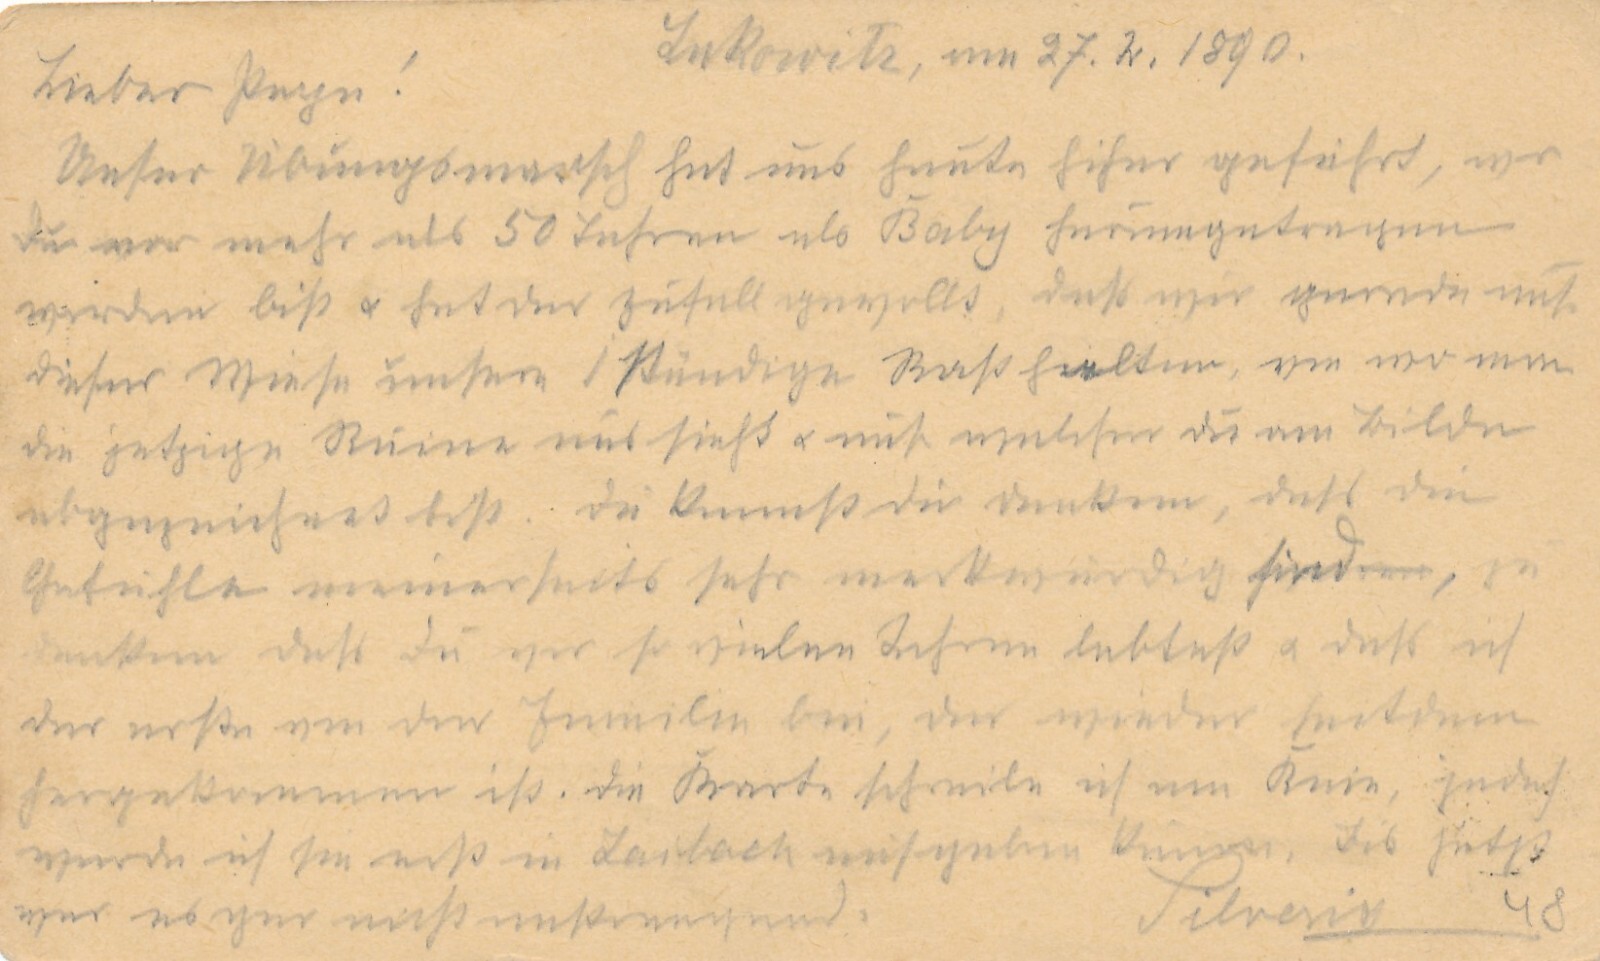 Lukowitz, am 27. 2. 1890.
Lieber Papa!
Unser Übungsmarsch hat uns heute hiher geführt, wo
Du vor mehr als 50 Jahren als Baby herumgetragen
worden bist & hat der Zufall gewollt, daß wir gerade auf
dieser Wiese unsere 1 stündige Rast hielten, von wo man
die jetzige Ruine aus sieht & auf welcher Du am Bilde
abgezeichnet bist. Du kannst Dir denken, daß die
Gefühle meinerseits sehr merkwürdig sind, zu
denken daß Du vor so vielen Jahren lebtest & daß ich
der erste von der Familie bin, der wieder seitdem
hergekommen ist. Die Karte schreibe ich am Knie, jedoch
werde ich sie erst in Laibach aufgeben können. Bis jetzt
war es gar nicht anstrengend.
Silverius 48